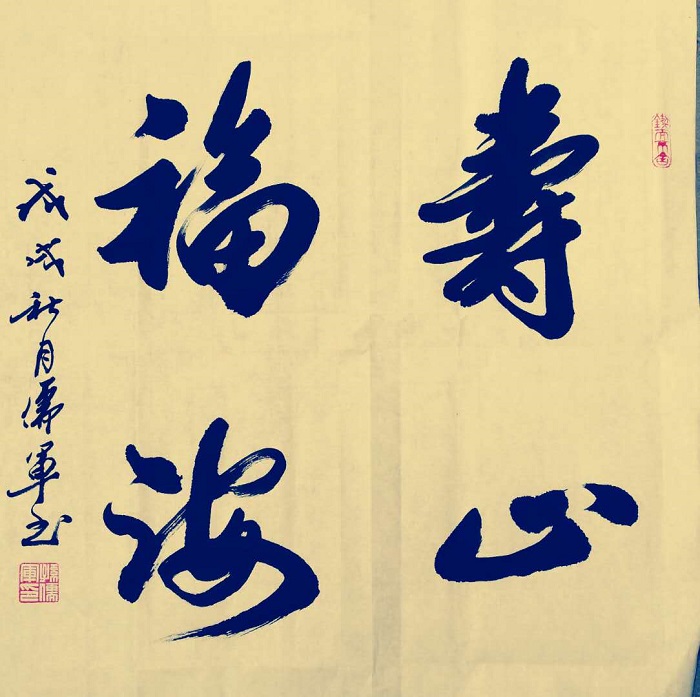 壽山
福海
戊戌秋月儒軍书